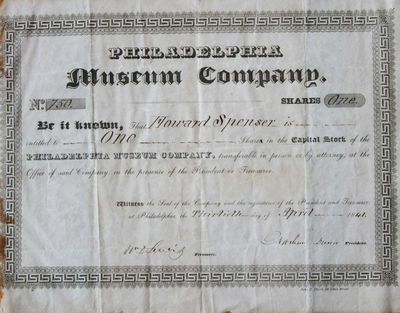 PHILADELPHIA
Museum Company.
No. 750. SHARES One.
Be it known, That Howard Spenser is
entitled to One Share in the Capital Stock of the
PHILADELPHIA MUSEUM COMPANY, transferable in person or by attorney, at the
Office of said Company, in the presence of the President or Treasurer.
Witness the Seal of the Company and the signatures of the President and Treasurer
at Philadelphia, the Thirtieth day of April 1841.
President.
Treasurer.